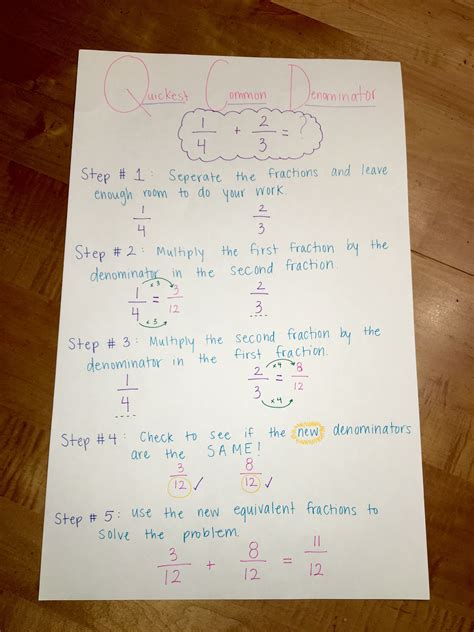 Quickest Common Denominator
1/4 + 2/3 = ?
Step # 1: Seperate the fractions and leave
enough room to do your work.
1/4 2/3
Step # 2: Multiply the first fraction by the
denominator in the second fraction.
x3
1/4 = 3/12 2/3
x3
Step # 3: Multiply the second fraction by the
denominator in the first fraction.
x4
1/4 2/3 = 8/12
x4
Step #4: Check to see if the new denominators
are the SAME!
3/12 ✓ 8/12 ✓
Step # 5: use the new equivalent fractions to
solve the problem.
3/12 + 8/12 = 11/12